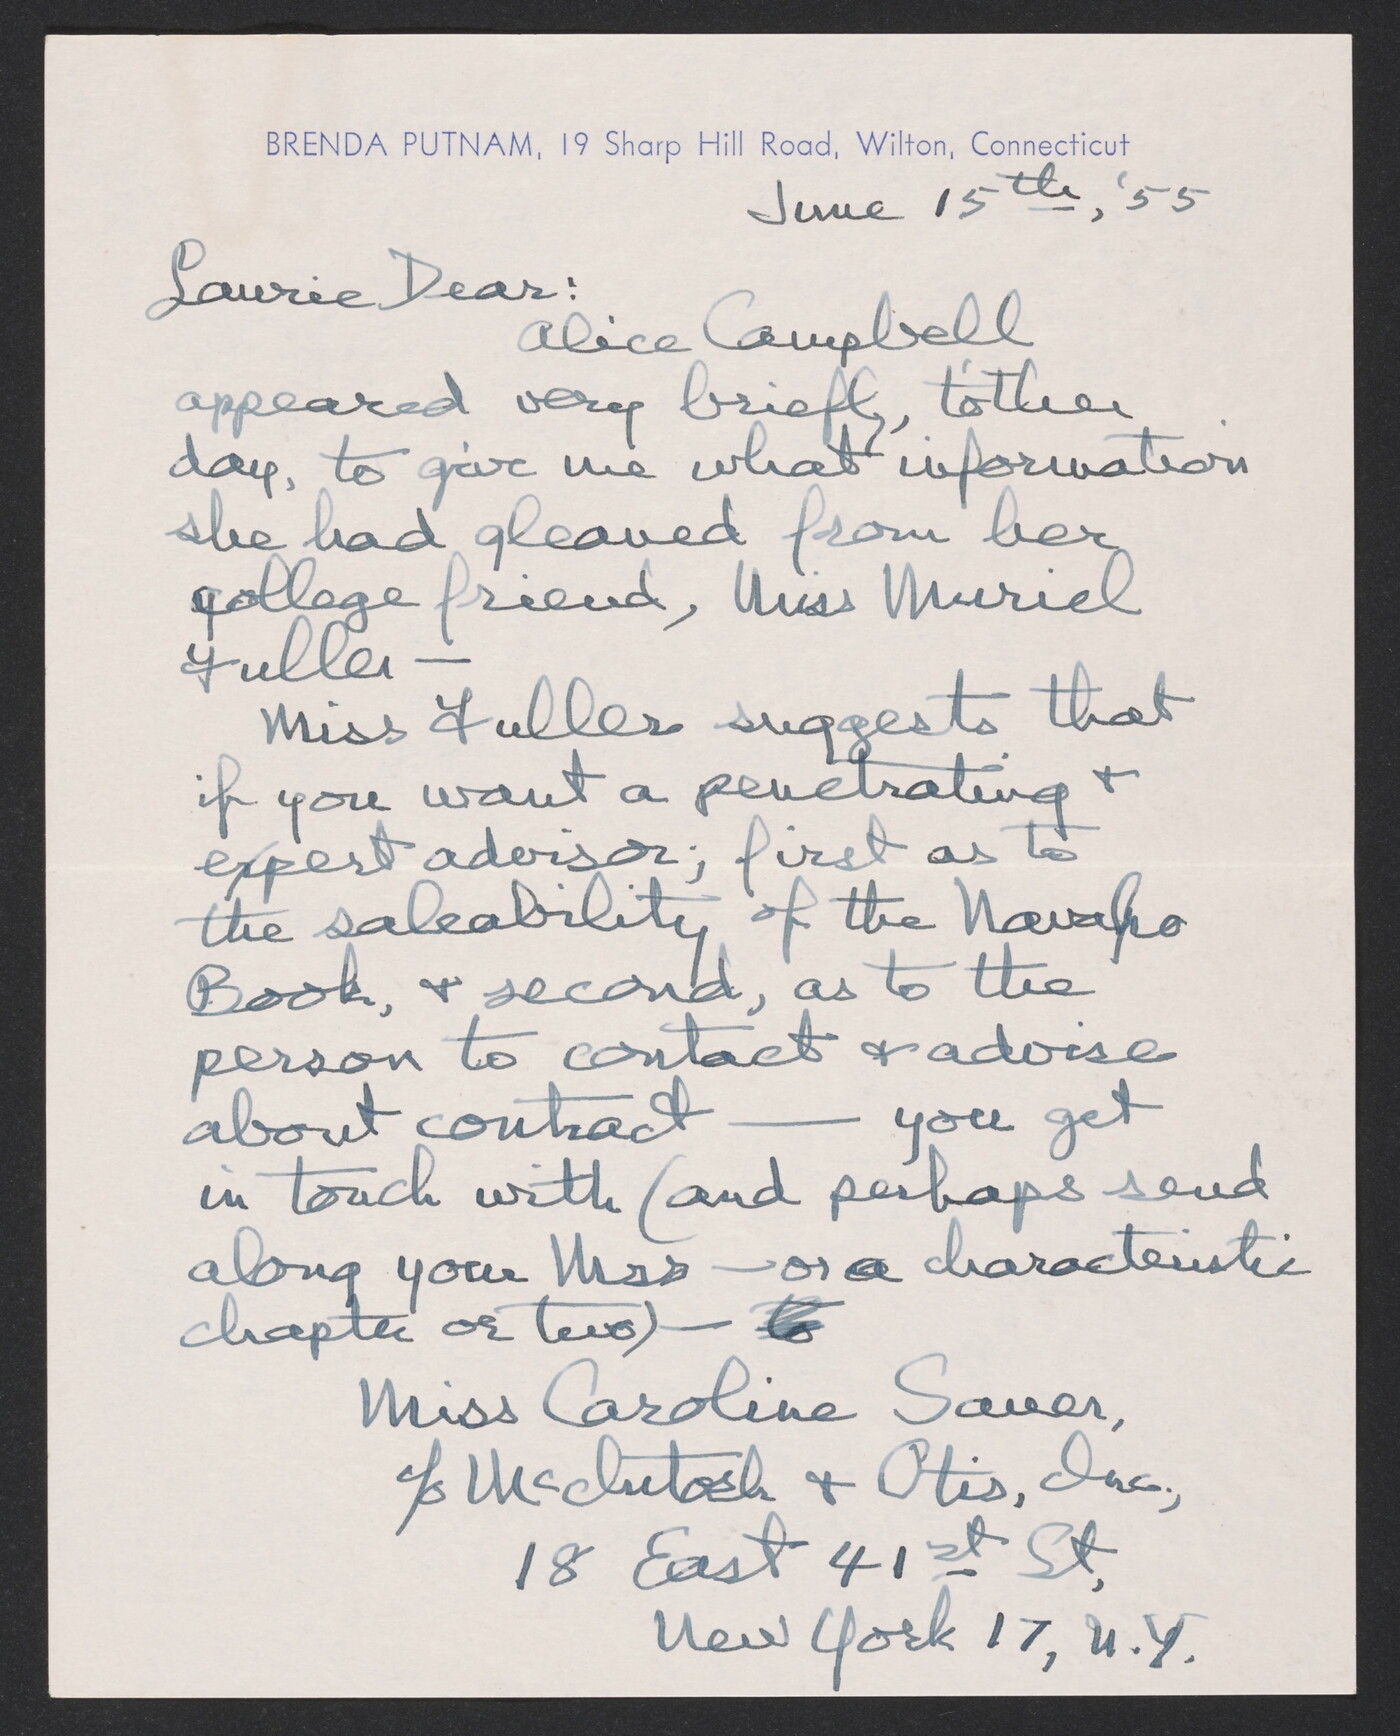 BRENDA PUTNAM, 19 Sharp Hill Road, Wilton, Connecticut
June 15th, '55
Laurie Dear:
Alice Campbell
appeared very briefly, t'other
day, to give me what information
she had gleaned from her
college friend, Miss Muriel
Fuller —
Miss Fuller suggests that
if you want a penetrating +
expert advisor; first as to
the saleability of the Navaho
Book, + second, as to the
person to contact + advise
about contract — you get
in touch with (and perhaps send
along your Mss — or a characteristic
chapter or two) — to
Miss Caroline Sauer,
c/o McIntosh + Otis, Inc.,
18 East 41st St,
New York 17, N.Y.